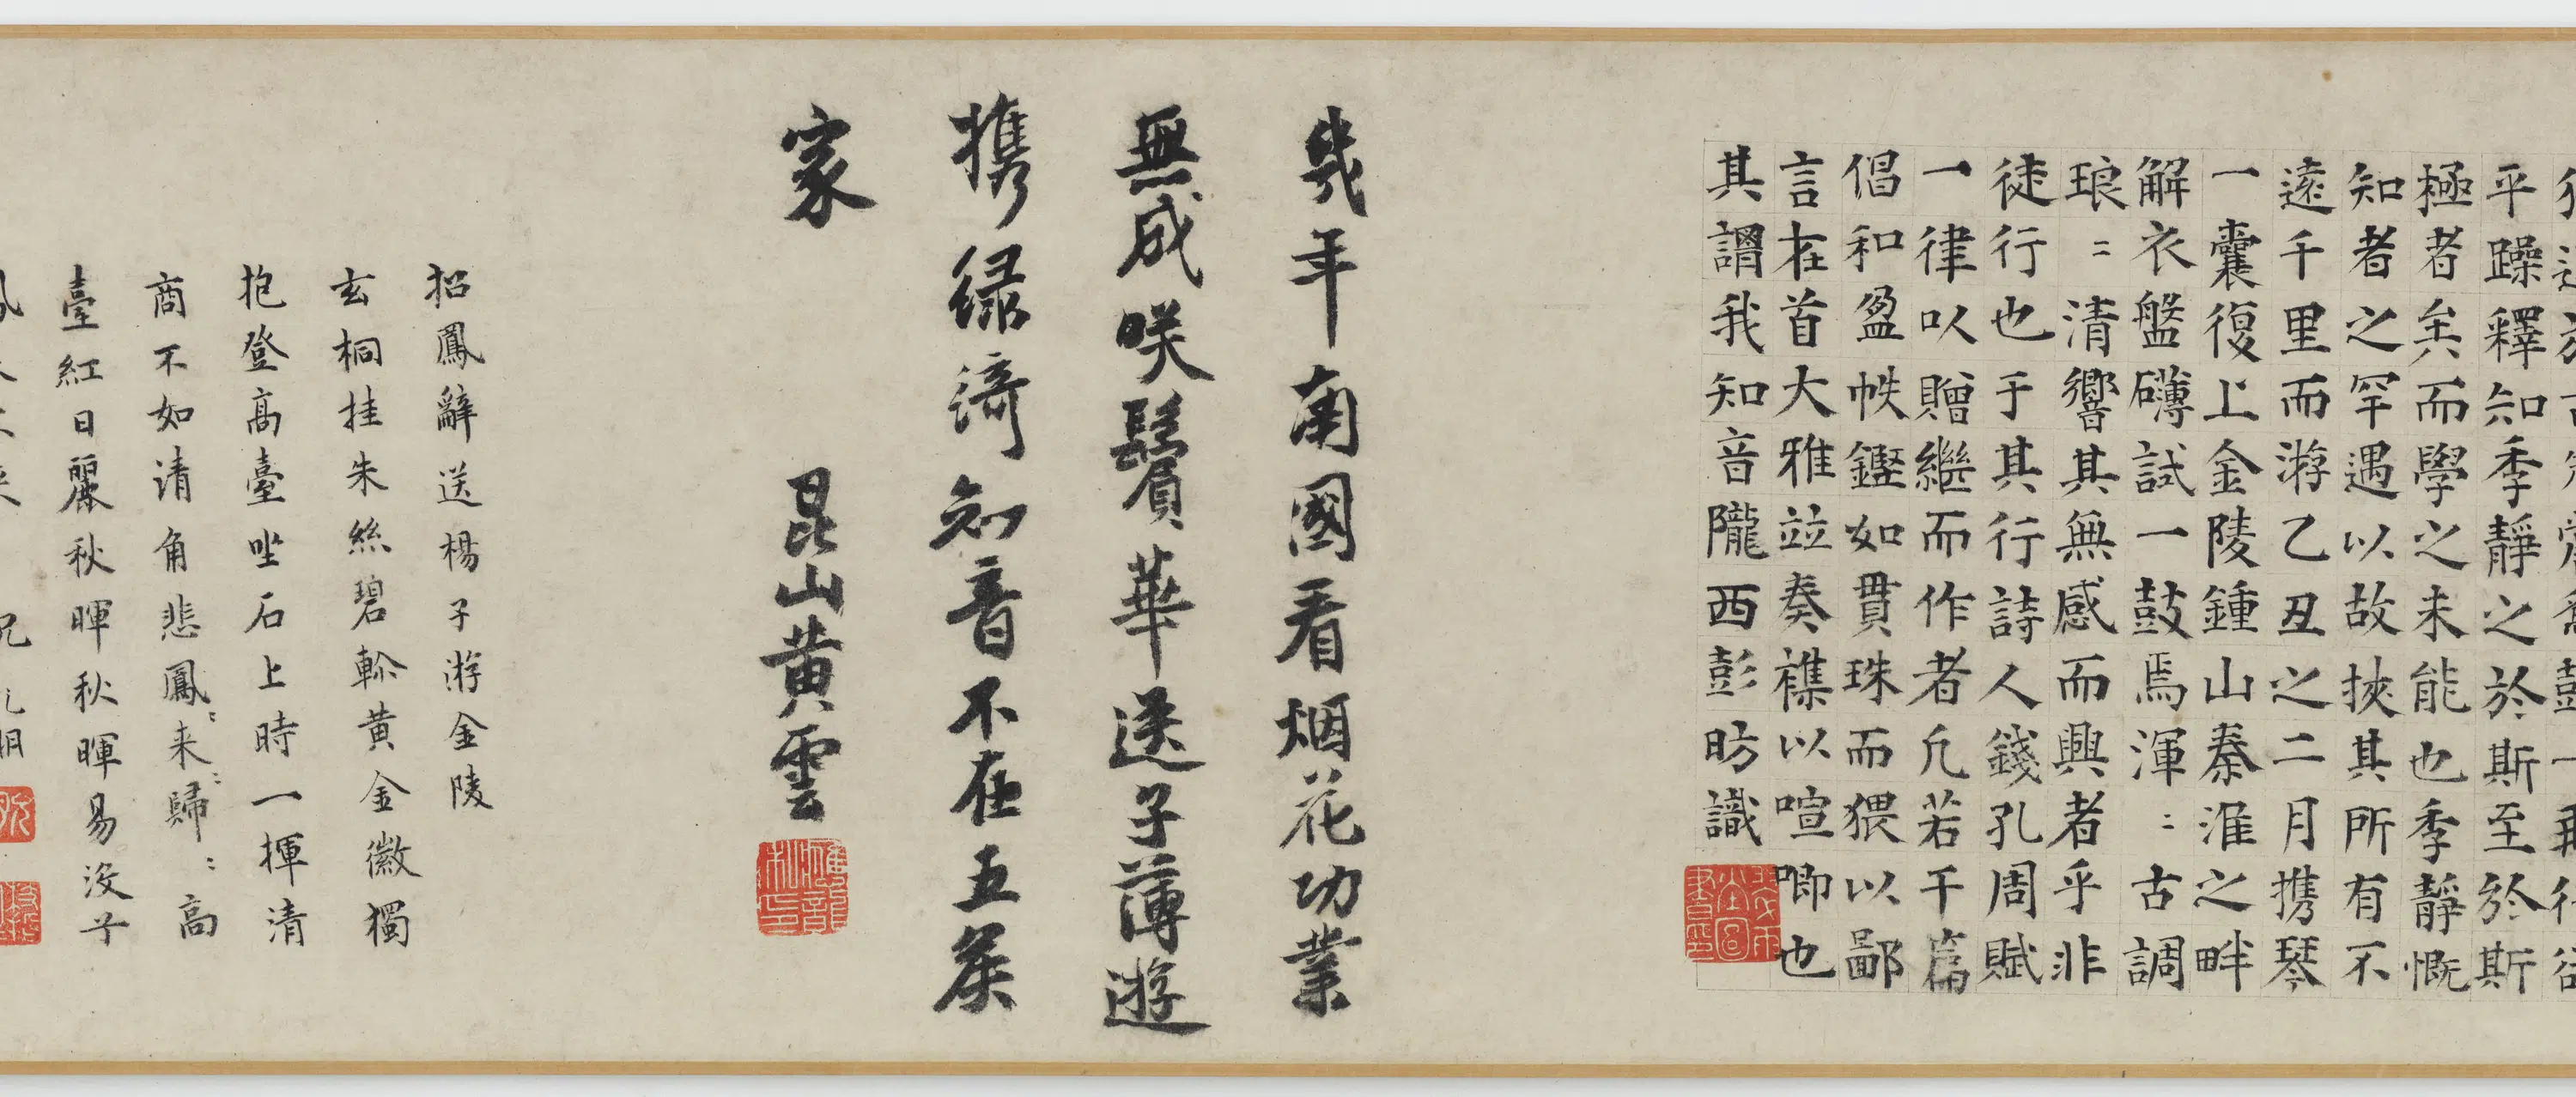 平躁釋知季靜之於斯至於斯
極者矣而學之未能也季靜慨
知者之罕遇以故挾其所有不
遠千里而游乙丑之二月携琴
一囊復上金陵鍾山秦淮之畔
解衣盤礴試一鼓焉渾〻古調
琅〻清響其無感而興者乎非
徒行也于其行行詩人錢孔周賦
一律以贈繼而作者凡若干篇
倡和盈帙鏗如貫珠而猥以鄙
言在首大雅竝奏襍以喧唧也
其謂我知音隴西彭昉識
幾年南國看烟花功業
無成咲鬢華送子薄遊
携绿漪知音不在五侯
家
昆山黄雲
招鳳辭送楊子游金陵
玄桐挂朱絲碧軫黄金徽獨
抱登高臺坐石上時一揮清
商不如清角悲鳳〻来〻歸〻高
臺紅日麗秋暉秋暉易没子